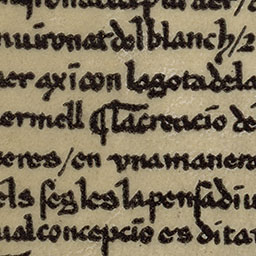 nuironat del blanch/2
er axi con la gota dela
ermell ¶ La creacio de
eres/en vna manera
els segles la pensa diu
ual concepcio es dita